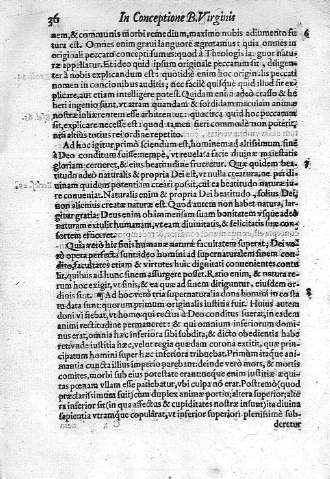 36 In Conceptione B. Virginis
nem, & communis morbi remedium, maximo nobis adiumento fu
tura est. Omnes enim graui languore ægrotamus: quia omnes in
originali peccato concepti sumus: quod à Theologis languor natu
ræ appellatur. Et ideo quid ipsum originale peccatum sit, diligen-
ter à nobis explicandum est: quotidie enim hoc originalis peccati
nomen in concionibus auditis; nec facilè quisquã quid illud sit ex
plicare, aut etiam intelligere potest. Quidam enim adeo crasso & he
beri ingenio sunt, vt atram quandam & sordidam maculam animæ
nostræ inhærentem esse arbitrentur: quocirca quid hoc peccatum
sit, explicare necesse est: quod tamen fieri commodè non poterit,
nisi altius totius rei ordine repetito.
Ad hoc igitur primò sciendum est, hominem ad altissimum finẽ
à Deo conditum fuisse: nempè, vt reuelata facie diuinæ maiestatis
gloriam cerneret, & eius beatitudine frueretur. Quæ quidem bea-
titudo adeò naturalis & propria Dei est, vt nulla creatura, ne per di
uinam quidem potentiam creari possit, cui ea beatitudo naturæ iu-
re conueniat. Naturalis enim & propria Dei beatitudo, solius Dei,
non alienius creatæ naturæ est. Quod autem non habet natura, lar-
gitur gratia: Deus enim ob immensam suam bonitatem vsque adeò
naturam extulit humanim, vt eam diuinitatis, & felicitatis suæ con-
sortem efficeret.
Quia verò hic finis humanæ naturæ facultatem superat; Dei ve-
rò opera perfecta sunt ideo homini ad supernaturalem finem con-
dito, facultates etiam & virtutes huic dignitati conuenientes contu
lit, quibus ad hunc finem assurgere posset. Ratio enim, & natura re-
rum hoc exigit, vt finis, & ea quæ ad finem diriguntur, eiusdem or-
dinis sint. Ad hoc verò tria supernaturalia dona homini in hoc sta
tu data sunt: quorum primum originalis iustitia fuit. Huius autem
doni vi fiebat, vt homo qui rectus à Deo conditus fuerat, in eadem
animi rectitudine permaneret: & qui omnium inferiorum domi-
nus erat, omnia hæc inferiora sibi subdita, & dicto obedientia habe
ret: vnde iustitia hæc, velut regia quædam corona extitit, quæ prin-
cipatum homini super hæc inferiora tribuebat. Primùm itaque ani-
mantia cuncta illius imperio parebant: deinde verò mors, & mortis
comites, morbi sub eius potestate erant: neque enim iustitiæ æqui-
tas pœnam vllam esse patiebatur, vbi culpa nõ erat. Postremò (quod
præclarissimum fuit) cùm duplex animæ portio; altera superior; alte
ra inferior sit (in qua affectus & cupiditates nostræ insunt) ita diuina
sapientia vtramque copulârat, vt inferior superiori plenissimè sub-
deretur